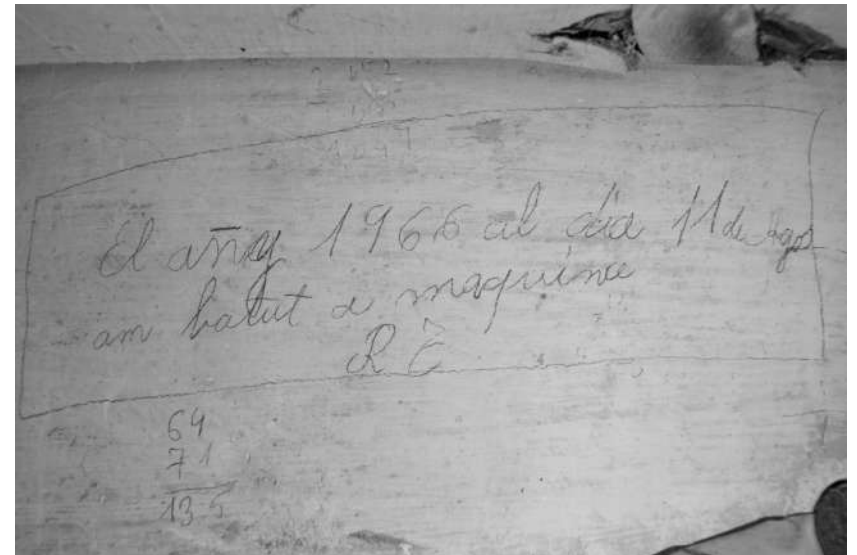 El añy 1966 al dia 11 de Agos
am batut a maquina
R C
64
71
135